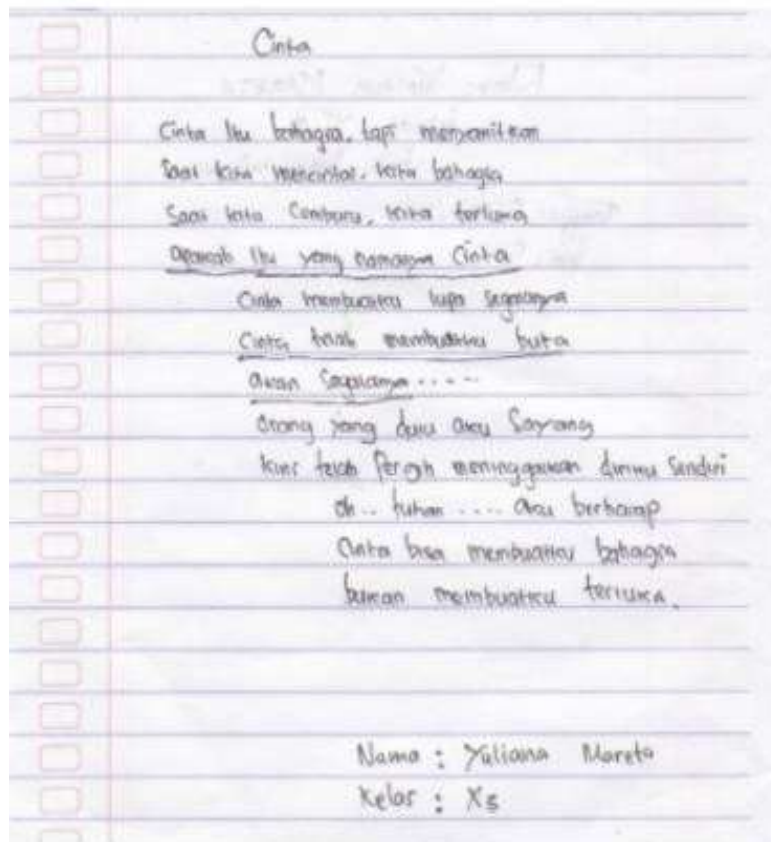 Cinta
Cinta Itu bahagia, tapi menyakitkan
Saat kita mencintai, kita bahagia
Saat kita Cemburu, kita terluka
apakah Itu yang namanya Cinta
Cinta membuatku lupa segalanya
Cinta telah membuatku buta
akan Segalanya .....
orang yang dulu aku Sayang
kini telah Pergi meninggalkan dirimu Sendiri
oh.. tuhan .... aku berharap
Cinta bisa membuatku bahagia
bukan membuatku terluka.
Nama : Yuliana Mareta
Kelas : X5